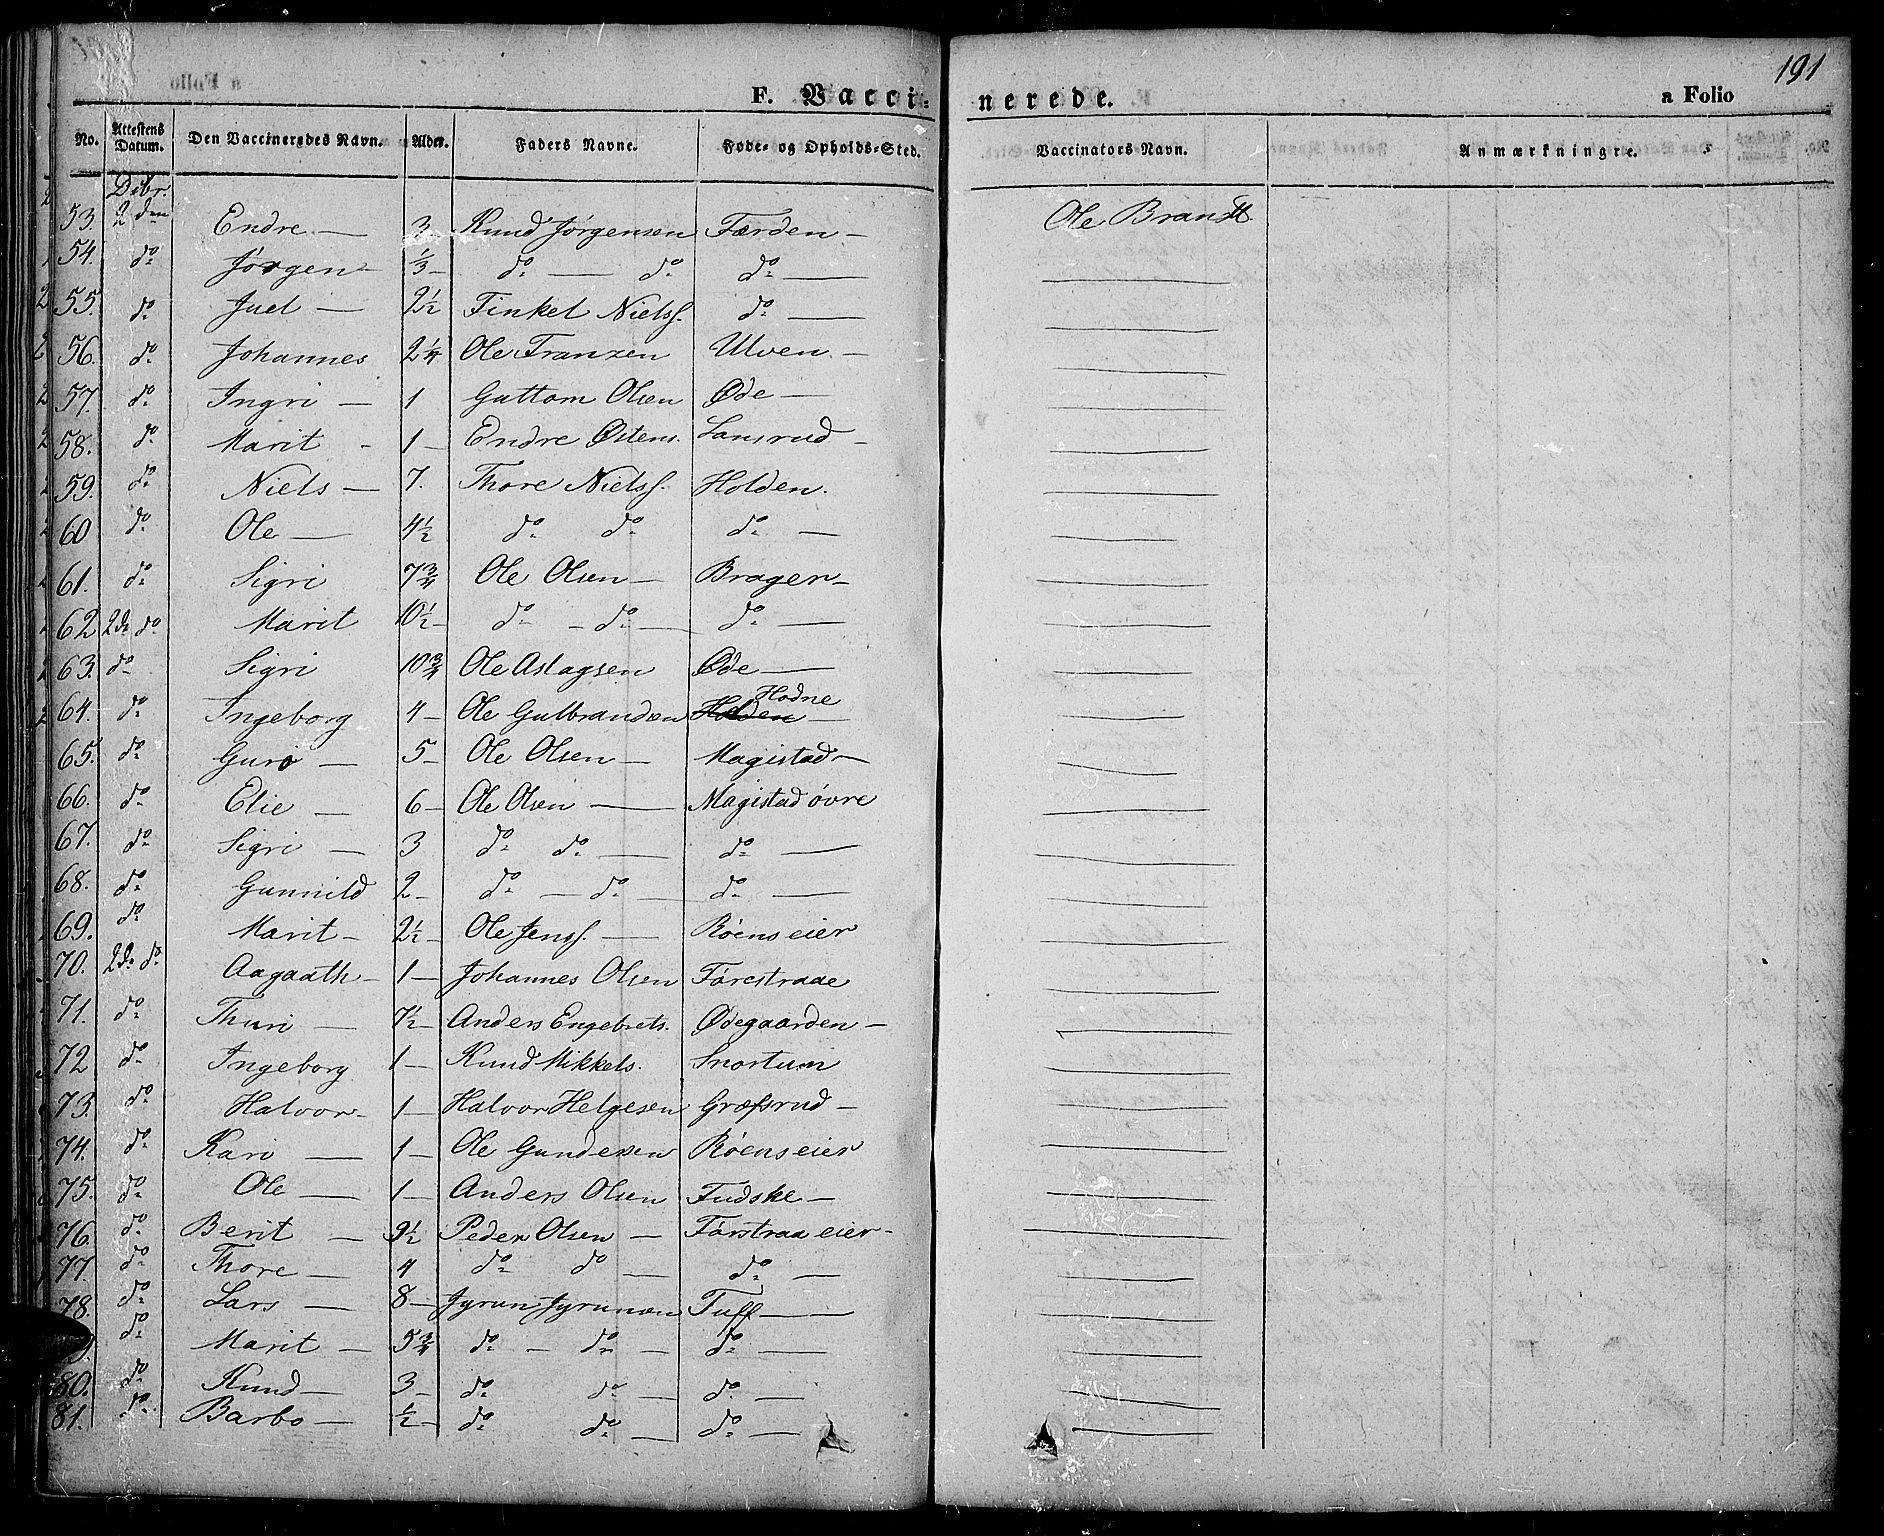 191
F. Vacci-
nerede.
a Folio
No. Attestens Datum. Den Vaccineredes Navn. Alder. Faders Navne. Føde- og Opholds-Sted. Vaccinators Navn. Anmærkninger.
Debr.
53. 2den Endre — 3 Knud Jørgensen Færden — Ole Brandt
54. do Jørgen 1/3 — do — do do —
55. do Juel — 2 1/2 Finkel Nielss. do —
56. do Johannes 2 1/4 Ole Franzen Ulven —
57. do Ingri — 1 Guttom Olsen Øde —
58. do Marit - 1 — Endre Østens. Lansrud —
59. do Niels — 7. Thore Nielss. Holden.
60 do Ole — 4 1/2 do do do —
61. do Sigri 7 3/4 Ole Olsen — Brager —
62 2de do Marit 10 1/2 do — do — do —
63. do Sigri 10 3/4 Ole Aslagsen Øde —
64. do Ingeborg 4 — Ole Gulbrandsen Holden Hodne —
65. do Guro — 5 — Ole Olsen — Magistad —
66. do Elie — 6 — Ole Olsen — Magistad øvre
67. do Sigri — 3 do do — do —
68. do Gunnild 2 - do — do — do —
69. do Marit — 2 1/2 — Ole Jenss. — Røens eier
70. 2de do Aagaath — 1 — Johannes Olsen Førestraae
71. do Thuri — 7 1/2 — Anders Engebrets. Ødegaarden —
72 do Ingeborg 1 — Knud Mikkels. Snortum
73. do Halvor — 1 — Halvor Helgesen Græsrud —
74. do Kari — 1 — Ole Gundersen Røens eier
75. do Ole — 1 — Anders Olsen Fudske —
76. do Berit — 9 1/2 Peder Olsen — Førstraa eier —
77. do Thore — 4 do do — do —
78. do Lars — 8 — Jyrun Jyrunsen Tuff —
do Marit — 5 3/4 do — do — do —
80. do Knud — 3 — do do — do —
81. do Barbo — 1/2 — do do — do —